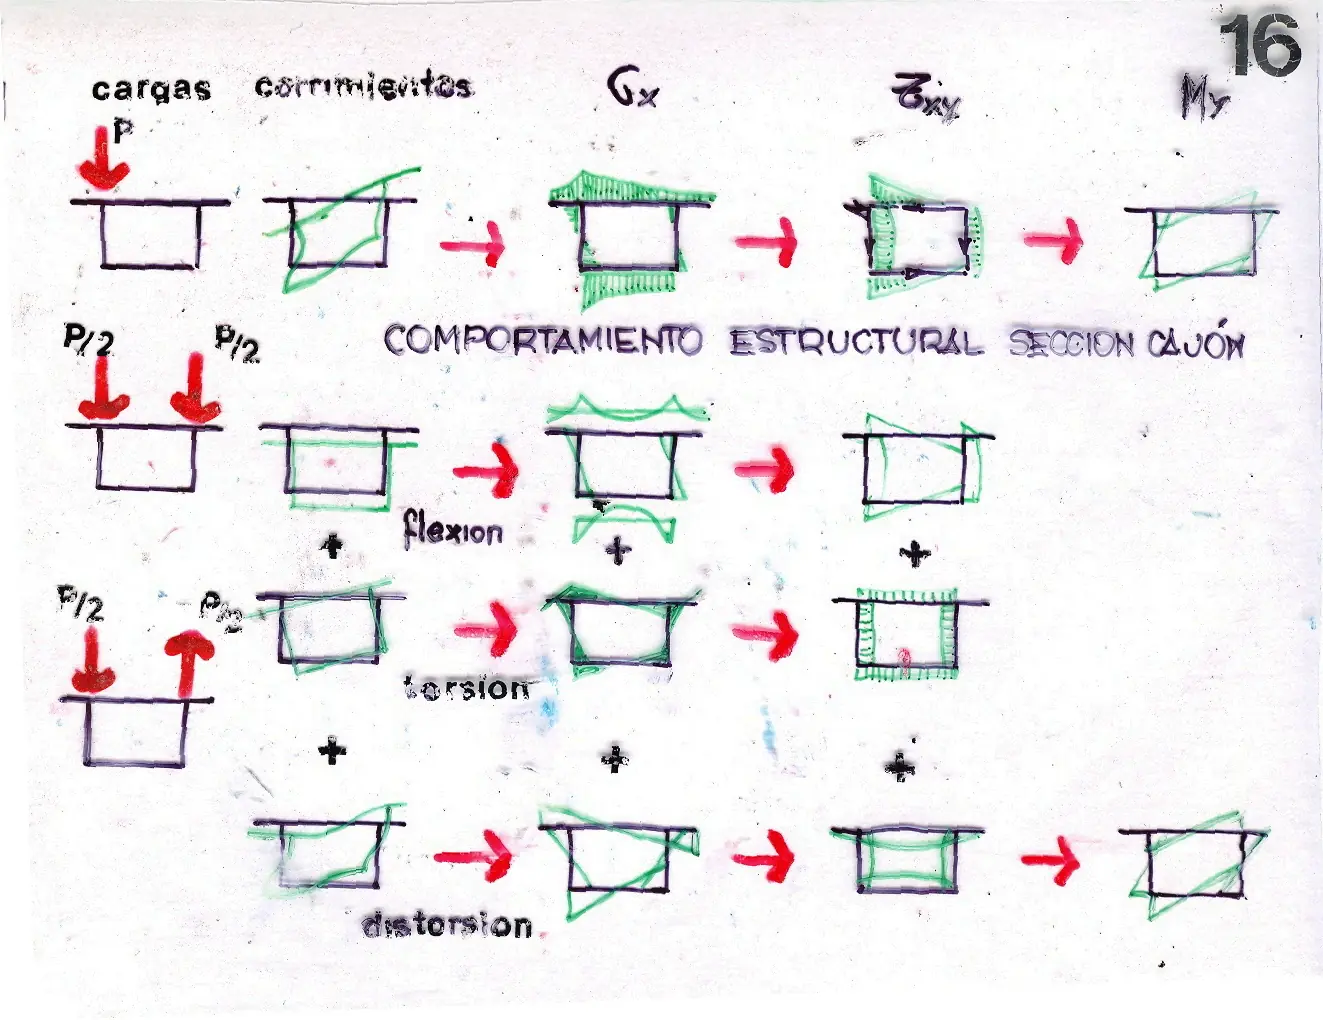 16
cargas corrimientos σx τxy My
P
P/2 P/2
COMPORTAMIENTO ESTRUCTURAL SECCION CAJÓN
flexion
+ + +
P/2 P/2
torsion
+ + +
distorsion